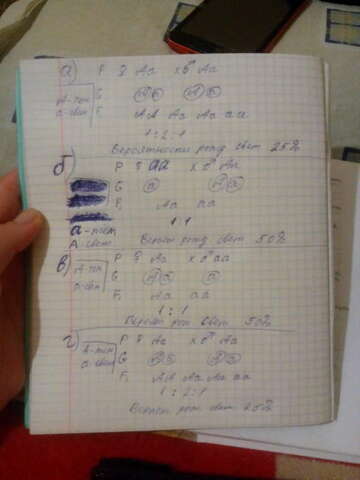 а) P ♀ Aa x ♂ Aa
А-тем G (A)(a) (A)(a)
а-свет F₁ AA Aa Aa aa
1:2:1
Вероятность рожд свет 25%
б) P ♀ aa x ♂ Aa
G (a) (A)(a)
F₁ Aa aa
а-тем 1:1
А-свет Вероят рожд свет 50%
в) P ♀ Aa x ♂ aa
А-тем G (A)(a) (a)
а-свет F₁ Aa aa
1:1
Вероят рож свет 50%
г) P ♀ Aa x ♂ Aa
А-тем G (A)(a) (A)(a)
а-свет F₁ AA Aa Aa aa
1:2:1
Вероят рож свет 25%